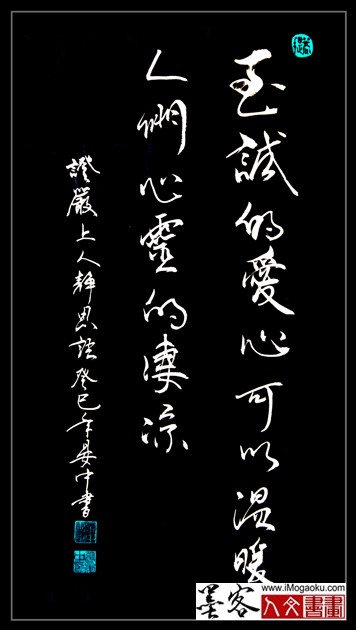 至誠的愛心可以溫暖
人們心靈的淒涼
證嚴上人靜思語癸巳年晏中書
www.iMogaoku.com
墨客
人文書畫